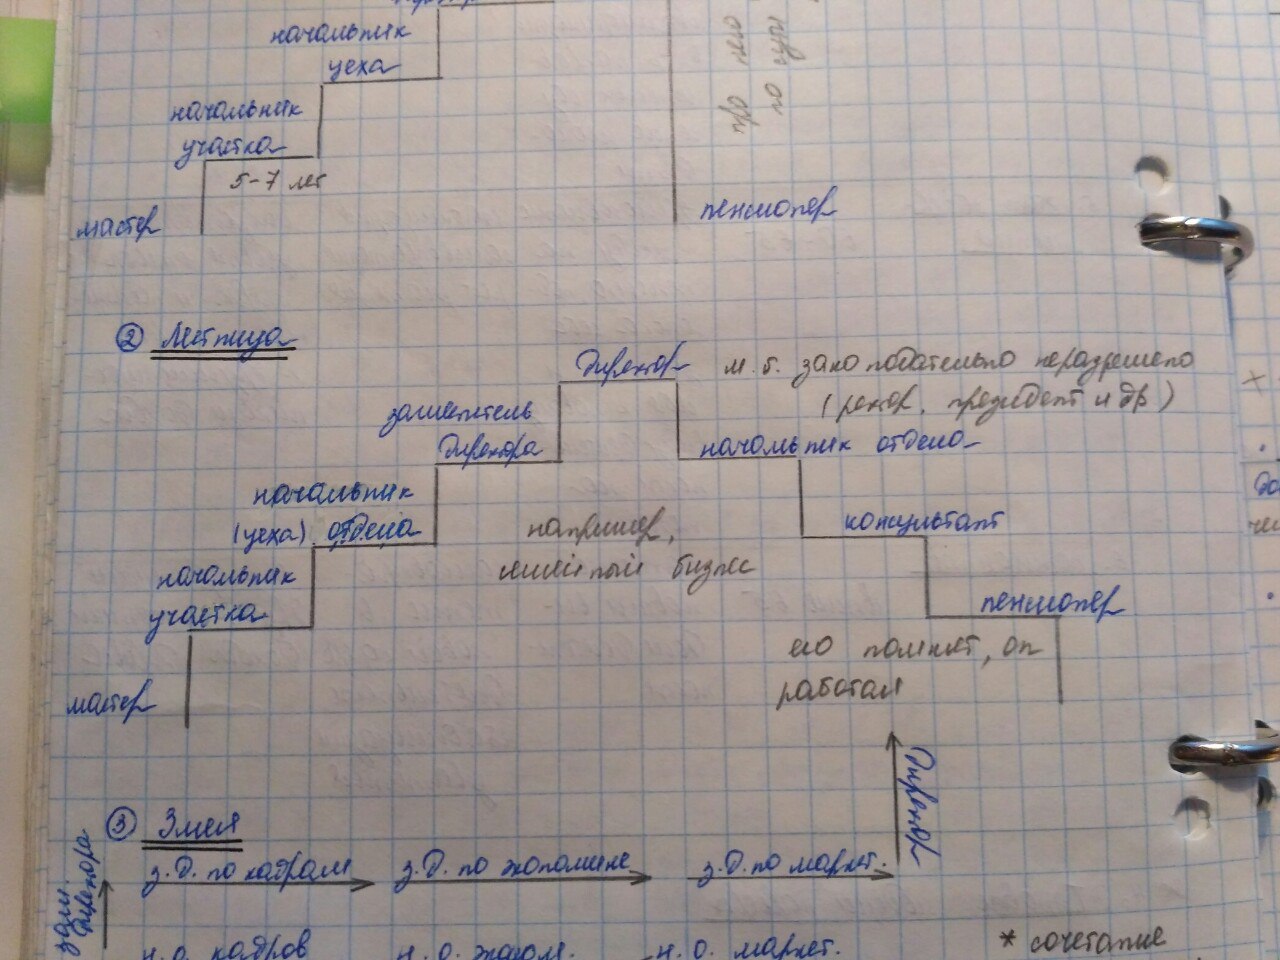 начальник
цеха
начальник
участка
5-7 лет
мастер
пенсионер
про него
по
② Лестница
директор
м.б. законодательно неразрешено
(ректор, президент и др)
заместитель
директора
начальник отдела
начальник
(цеха) отдела
например,
семейный бизнес
консультант
начальник
участка
пенсионер
его помнят, он
работал
мастер
③ Змея
директор
зам.
директора
з.д. по кадрам
з.д. по экономике
з.д. по маркет.
н.о. кадров
н.о. эконом.
н.о. маркет.
* сочетание